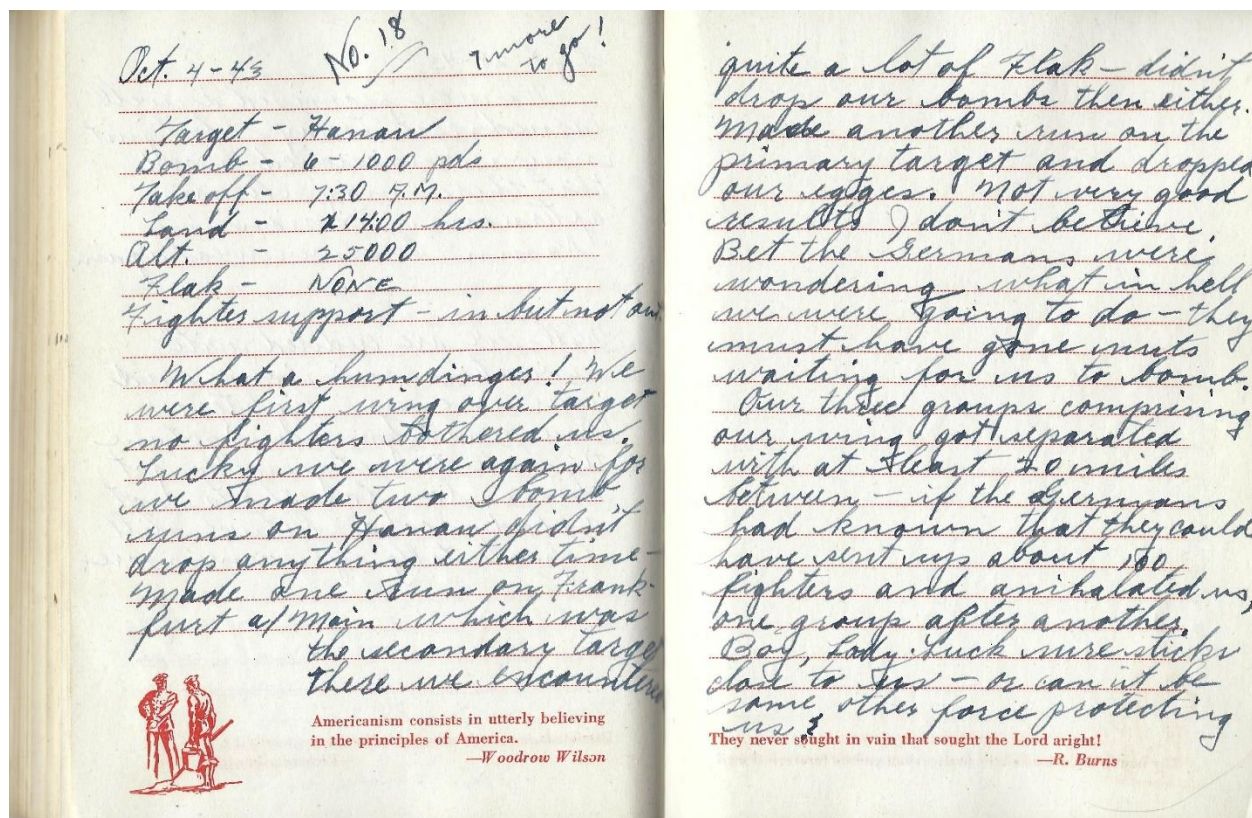 Oct. 4-43 No. 18 7 more to go!
Target - Hanau
Bomb - 6 - 1000 pds
Take off - 7:30 A.M.
Land - 14:00 hrs.
Alt. - 25000
Flak - NONE
Fighter support - in but not out.
What a humdinger! We
were first wing over target
no fighters bothered us.
Lucky we were again for
we made two bomb
runs on Hanau didn't
drop anything either time -
Made one run on Frank-
furt a/Main which was
the secondary target
there we encountered
Americanism consists in utterly believing
in the principles of America.
—Woodrow Wilson
quite a lot of Flak - didn't
drop our bombs then either.
Made another run on the
primary target and dropped
our egges. Not very good
results I don't believe.
Bet the Germans were
wondering what in hell
we were going to do - they
must have gone nuts
waiting for us to bomb.
Our three groups comprising
our wing got separated
with at least 20 miles
between - if the Germans
had known that they could
have sent up about 100
fighters and anihalated us,
one group after another.
Boy, Lady Luck sure sticks
close to us - or can it be
some other force protecting
us?
They never sought in vain that sought the Lord aright!
—R. Burns